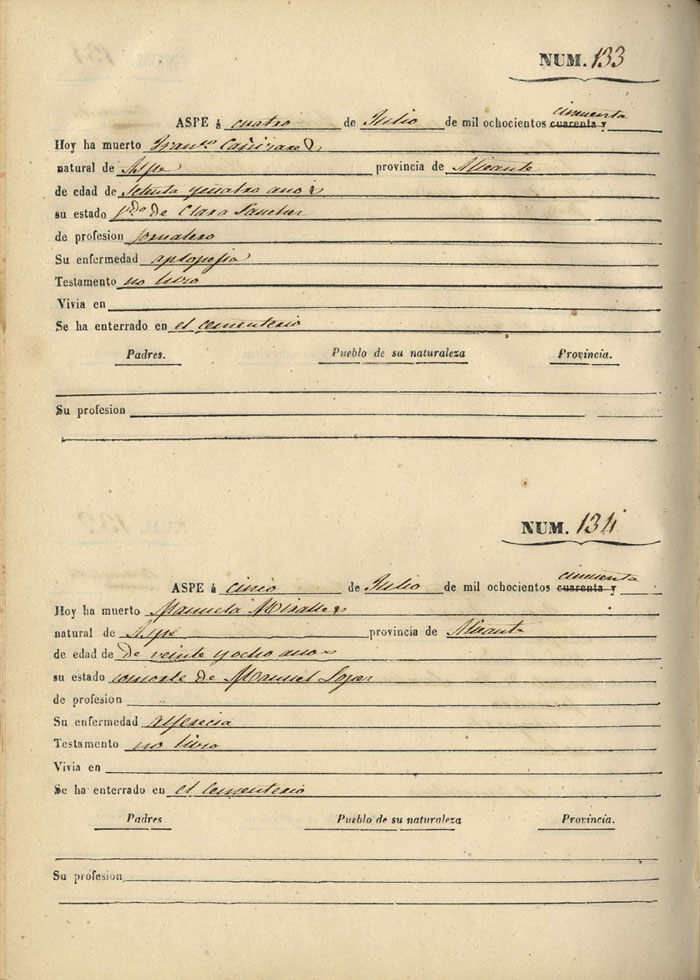 NUM. 133
cincuenta
ASPE á cuatro de Julio de mil ochocientos cuarenta y
Hoy ha muerto Fran.co Cañizares
natural de Aspe provincia de Alicante
de edad de setenta y cuatro años
su estado v.do de Clara Sanches
de profesion jornalero
Su enfermedad aplopejia
Testamento no hizo
Vivia en
Se ha enterrado en el cementerio
Padres. Pueblo de su naturaleza Provincia.
Su profesion
NUM. 134
cincuenta
ASPE á cinco de Julio de mil ochocientos cuarenta y
Hoy ha muerto Manuela Miralles
natural de Aspe provincia de Alicante
de edad de De veinte y ocho años
su estado consorte de Manuel Lopes
de profesion
Su enfermedad alferecia
Testamento no hizo
Vivia en
Se ha enterrado en el Cementerio
Padres Pueblo de su naturaleza Provincia.
Su profesion